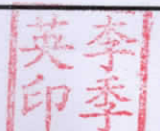 李季
英印